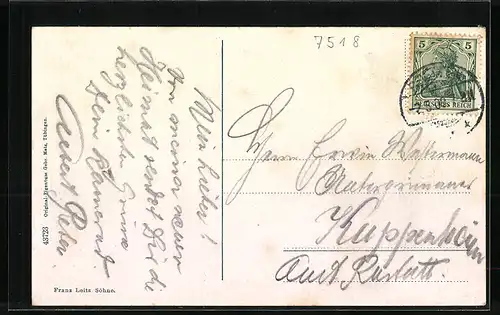 7518
Mein Lieber!
Von meiner neuen
Heimat sendet Dir die
herzlichsten Grüsse
Dein Kamerad
Peter
Herrn Erwin
Kuppenheim
Amt Rastatt.
5 5
DEUTSCHES REICH
43723 Original-Eigentum Gebr. Metz, Tübingen.
Franz Leitz. Söhne.